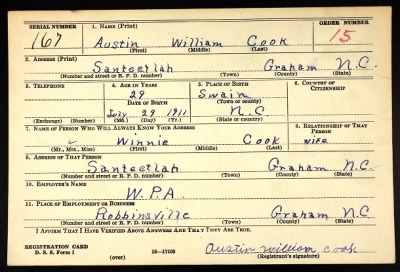 SERIAL NUMBER 1. NAME (Print) ORDER NUMBER
167 Austin William Cook 15
(First) (Middle) (Last)
2. ADDRESS (Print)
Santeetlah Graham N.C.
(Number and street or R. F. D. number) (Town) (County) (State)
3. TELEPHONE 4. AGE IN YEARS 5. PLACE OF BIRTH 6. COUNTRY OF CITIZENSHIP
29 Swain
DATE OF BIRTH (Town or county)
July 29 1911 N.C.
(Exchange) (Number) (Mo.) (Day) (Yr.) (State or country)
7. NAME OF PERSON WHO WILL ALWAYS KNOW YOUR ADDRESS 8. RELATIONSHIP OF THAT PERSON
Winnie Cook wife
(Mr., Mrs., Miss) (First) (Middle) (Last)
9. ADDRESS OF THAT PERSON
Santeetlah Graham N.C.
(Number and street or R. F. D. number) (Town) (County) (State)
10. EMPLOYER'S NAME
W.P.A.
11. PLACE OF EMPLOYMENT OR BUSINESS
Robbinsville Graham N.C.
(Number and street or R. F. D. number) (Town) (County) (State)
I AFFIRM THAT I HAVE VERIFIED ABOVE ANSWERS AND THAT THEY ARE TRUE.
REGISTRATION CARD
D. S. S. Form 1 (over) 16—17105 Austin William Cook
(Registrant's signature)